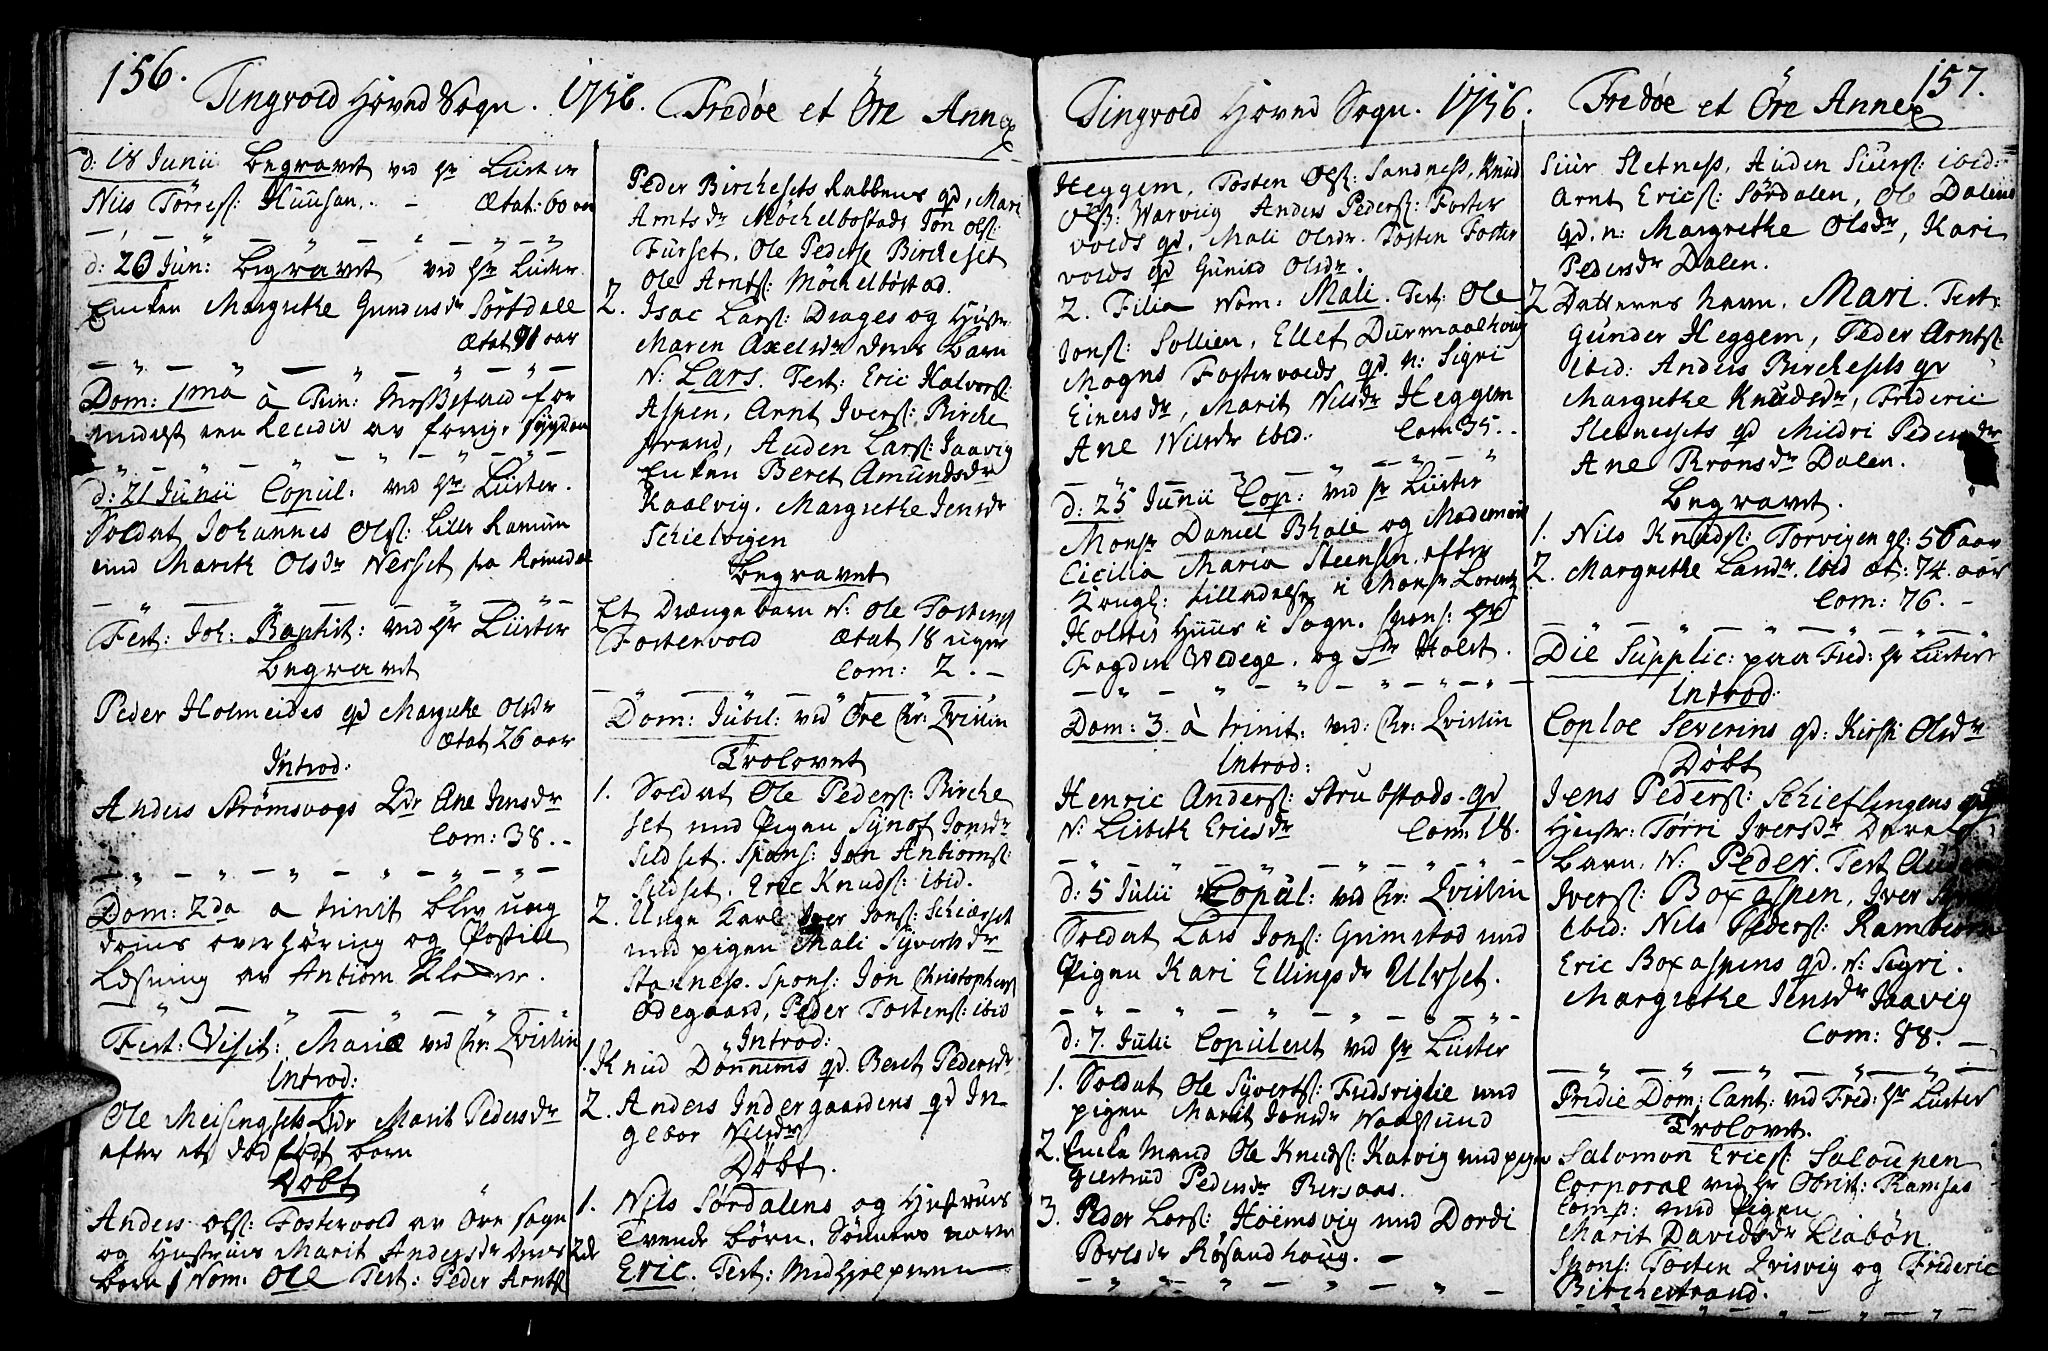 156.
Tingvold Hoved Sogn. 1756.
d: 18 Junii Begravet ved Hr Lüster
Nils Törresſ: Hüüsan. - Ætat: 60 aar
d: 20 Jun: Begravet ved Hr Lüster
Enken Margrethe Gundersdr Sörtdall
Ætat 91 aar
Dom: 1ma à Trin: Messefald for
medelst een Recidiv av forrige Sygdom
d: 21 Junii Copul: ved Hr Lüster.
Soldat Johannes Olsſ: Lille Ramüm
med Marith Olsdr Nesset fra Romsdal
Fest: Joh: Baptist: ved Hr Lüster
Begravet
Peder Holmeides qd Margrethe Olsdr
Ætat 26 aar
Introd:
Anders Strömsvogs Qdr Ane Jensdr
Com: 38. -
Dom: 2da a trinit blev ung
doms overhöring og Postill
Læsning av Antiorn Klocker.
Fest: Visit: Mariæ ved Hr: Qvislin
Introd:
Ole Meisingsets Qdr Marit Pedersdr
efter et död födt barn
Döbt
Anders Olsſ: Fostervold av Öre sogn
og Hustrues Marit Andersdr deres
barn Nom: Ole Test: Peder Arntsſ
Fredøe et Öre Annex
Peder Birchesets Rabbens qd, Mari
Arntsdr Möchelbostad, Jon Olsſ:
Fürset, Ole Pederse Bircheset
Ole Arntsſ: Möchelböstad.
2. Isac Larsſ: Drages og Hustr:
Maren Axelsdr deres barn
N: Lars. Test: Eric Halvorsſ:
Aspen, Arnt Iversſ: Birche
strand, Auden Larsſ: Jaavig
Enken Beret Amundsdr
Kaalvig, Margrethe Jensdr
Schielvigen
Begravet
Et Drænge barn N: Ole Tostensſ
Fostervold Ætat 18 uger
Com: 2. -
Dom: Jubil: ved Öre Hr: Qvislin
Trolovet
1. Soldat Ole Pedersſ: Birche
set med Pigen Synof Jonsdr
Sildset. Spons: Jon Antiornsſ:
Sildset. Eric Knudsſ: ibid.
2. Unge Karl Iver Jonsſ: Schierset
med pigen Mali Syvertsdr
Starness. Spons: Jon Christophersſ
Ödegaard, Peder Tostensſ: ibid
Introd:
1. Knud Dönnems qd. Beret Pedersdr
2. Anders Indergaardens qd In-
gebor Nilsdr
Döbt.
1. Nils Sördalens og Hustrues
Tvende börn. Sönnens navn
Eric. Test: Medhjelperen
Tingvold Hoved Sogn. 1756.
Heggem, Tosten Olsſ: Sandness, Knud
Olsſ: Warviig Anders Pedersſ: Foster
volds qd, Mali Olsdr. Tosten Foster
volds qd Gunild Olsdr.
2. Filia Nom: Mali. Test: Ole
Jonsſ: Sollien, Ellef Dürmaalhoug
Mogns Fostervolds qd. n: Sigri
Einersdr, Marit Nilsdr Heggem
Ane Nilsdr ibid: Com 35. -
d: 25 Junii Cop: ved Hr Lüster
Monsr Daniel Bhalé og Mademois
Cicilia Maria Steensen efter
Kongl: tilladelse i Monsr Lorentz
Holstes Huus i Sogn. Spons: Hr
Fogden Wedege. og Sr Holst.
Dom: 3. à trinit: ved: Hr: Qvislin
Introd:
Henric Andersſ: Strubstads qd
N: Lisbeth Ericsdr Com: 18.
d: 5 Julii Copul: ved Hr: Qvislin
Soldat Lars Jonsſ: Grimstad med
Pigen Kari Ellingsdr Ulvset.
d: 7 Julii Copuleret ved Hr Lüster
1. Soldat Ole Syvertsſ: Fudsviglie med
pigen Marit Jonsdr Waagsund
2. Encke Mand Ole Knudsſ: Katvig med pigen
Giertrud Pedersdr Bersaas.
3. Peder Larsſ: Höimsvig med Dordi
Povlsdr Rösandhoug. -
157.
Fredøe et Öre Annex
Siur Sletness, Auden Siursſ: ibid:
Arnt Ericsſ: Sördalen, Ole Dalens
qd. n: Margrethe Olsdr, Kari
Pedersdr Dalen.
2 Datterens navn. Mari. Test:
Gunder Heggem, Peder Arntsſ:
ibid: Anders Birchesets qd
Margrethe Knudsdr, Frideric
Sletnesets qd Mildri Pedersdr
Ane Bronsdr Dalen.
Begravet.
1. Nils Knudsſ: Torvigen gl: 56 aar
2. Margrethe Landr. ibid æt: 74. aar
Com: 76. -
Die Supplic: paa Fred: Hr Lüster
Introd:
Coploe Severins qd: Kirsti Olsdr
Döbt
Jens Pedersſ: Schieflingens og
Hustr: Törri Iversdr Deres
barn. N: Peder. Test Auden
Iversſ: Boxaspen, Iver
ibid: Nils Pedersſ: Rambiörn
Eric Boxaspens qd. N: Sigri.
Margrethe Jensdr Jaavig
Com: 88. -
Pridie Dom: Cant: ved Fred: Hr Lüster
Trolovet.
Salomon Ericsſ: Saloupen
Corporal ved Hr Obrist: Ramsøs
Comp: med Pigen
Marit Davidsdr Liabön.
Spons: Tosten Qvisvig og Frideric
Birchestrand.